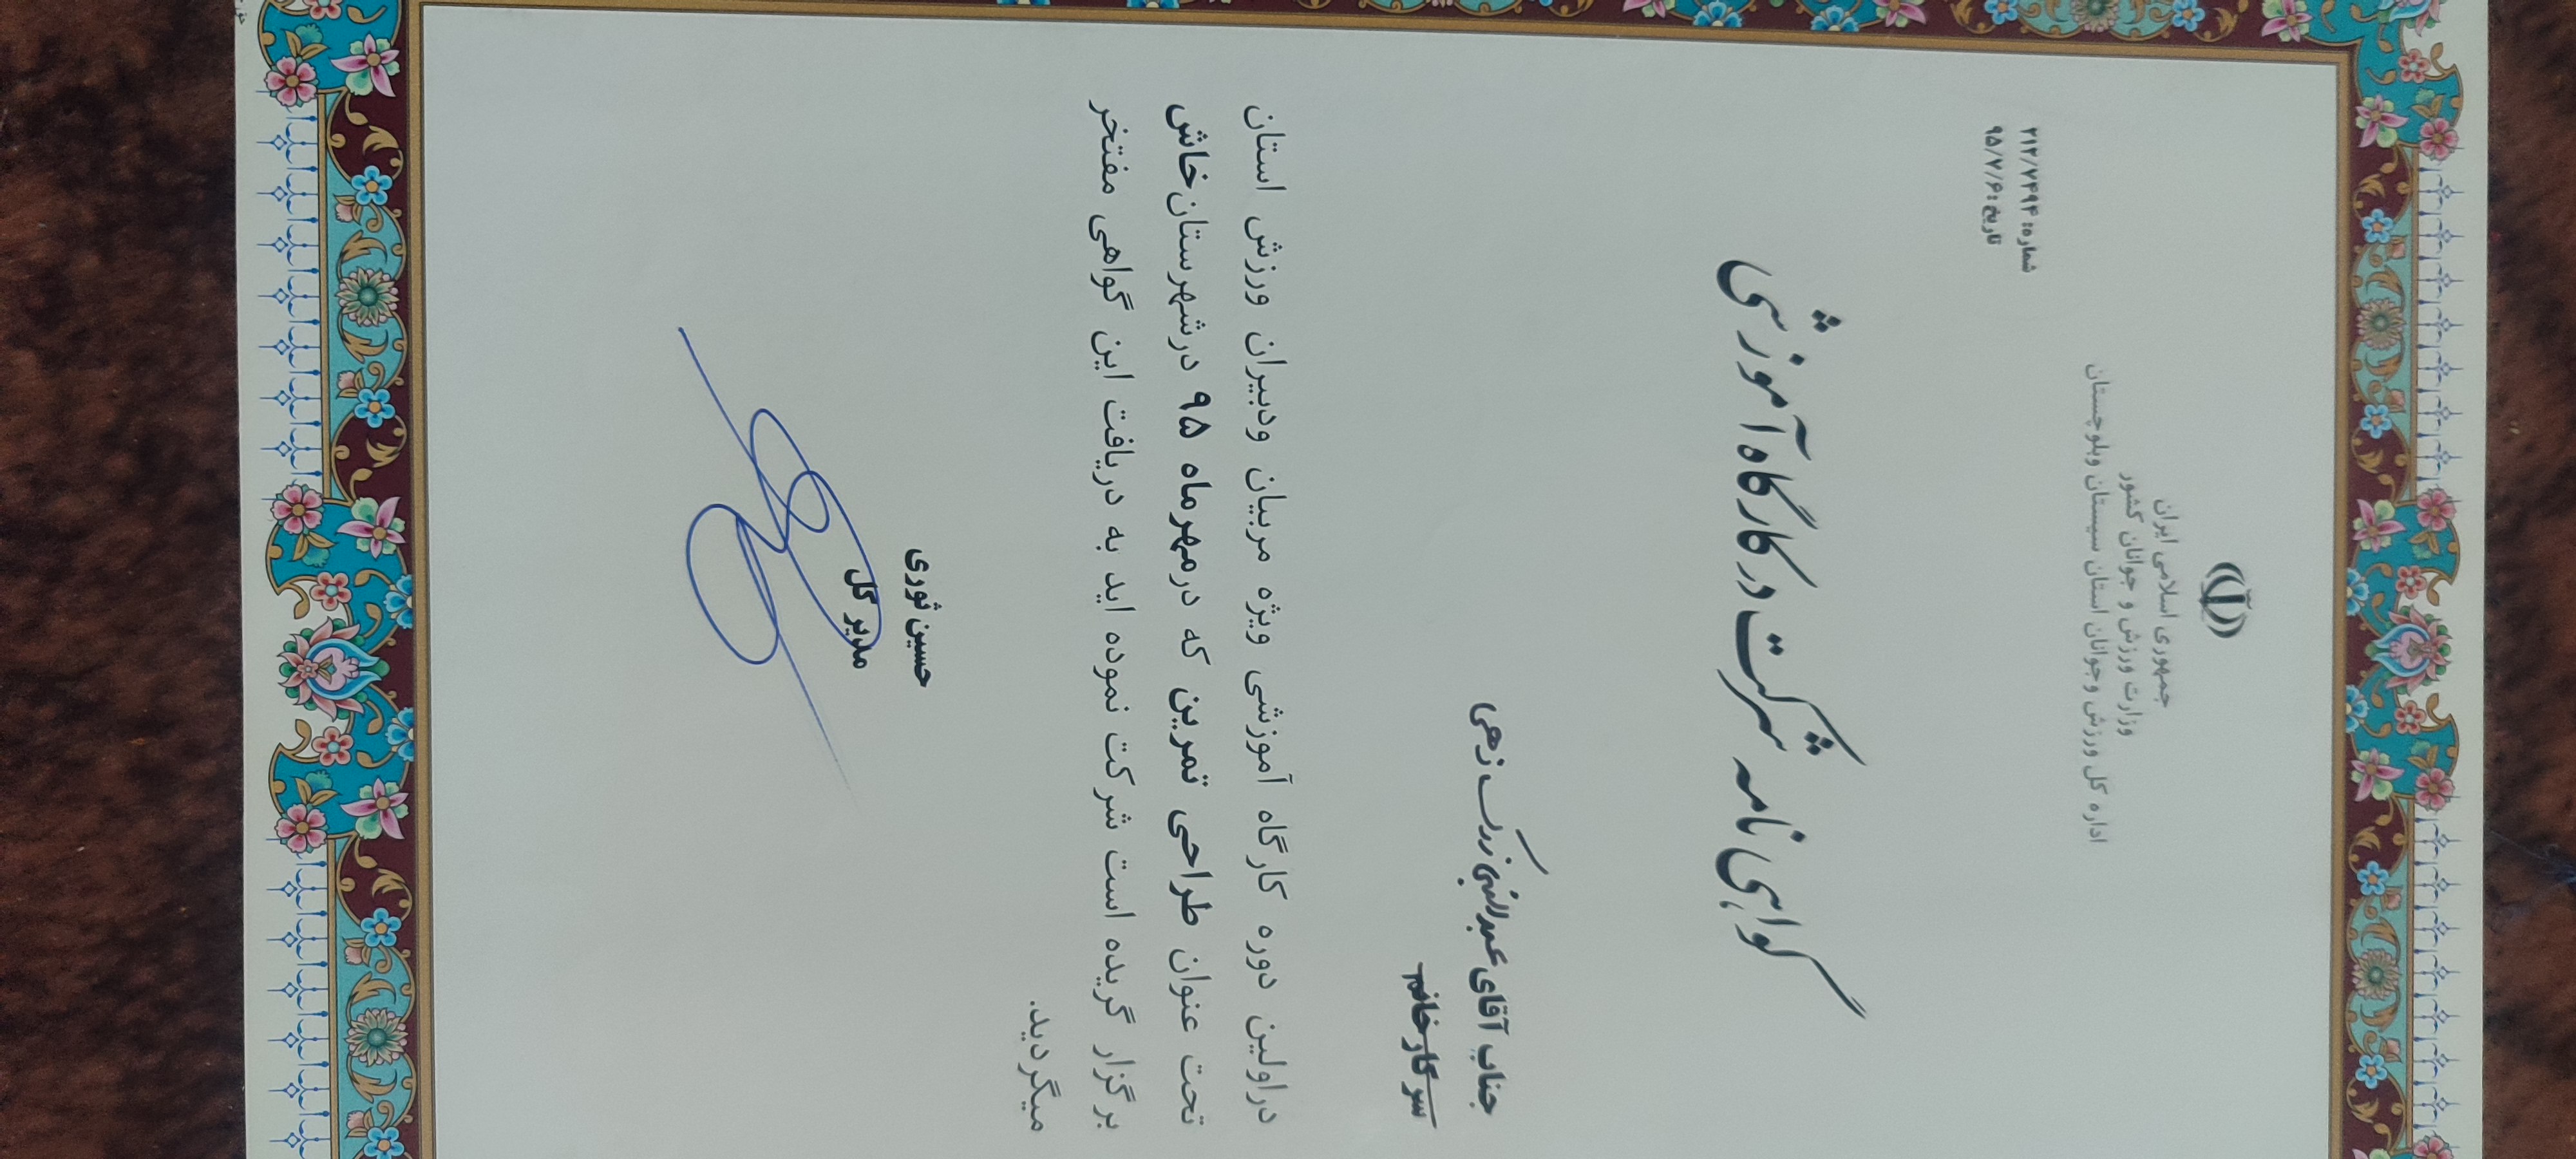 جمهوری اسلامی ایران
وزارت ورزش و جوانان کشور
اداره کل ورزش وجوانان استان سیستان وبلوچستان
شماره: ۲۱۲/۷۴۹۴
تاریخ: ۹۵/۷/۶
گواهی نامه شرکت در کارگاه آموزشی
جناب آقای عبدالنبی زرک زهی
سرکار خانم
دراولین دوره کارگاه آموزشی ویژه مربیان ودبیران ورزش استان
تحت عنوان طراحی تمرین که درمهرماه ۹۵ درشهرستان خاش
برگزار گریده است شرکت نموده اید به دریافت این گواهی مفتخر
میگردید.
حسین ثوری
مدیر کل